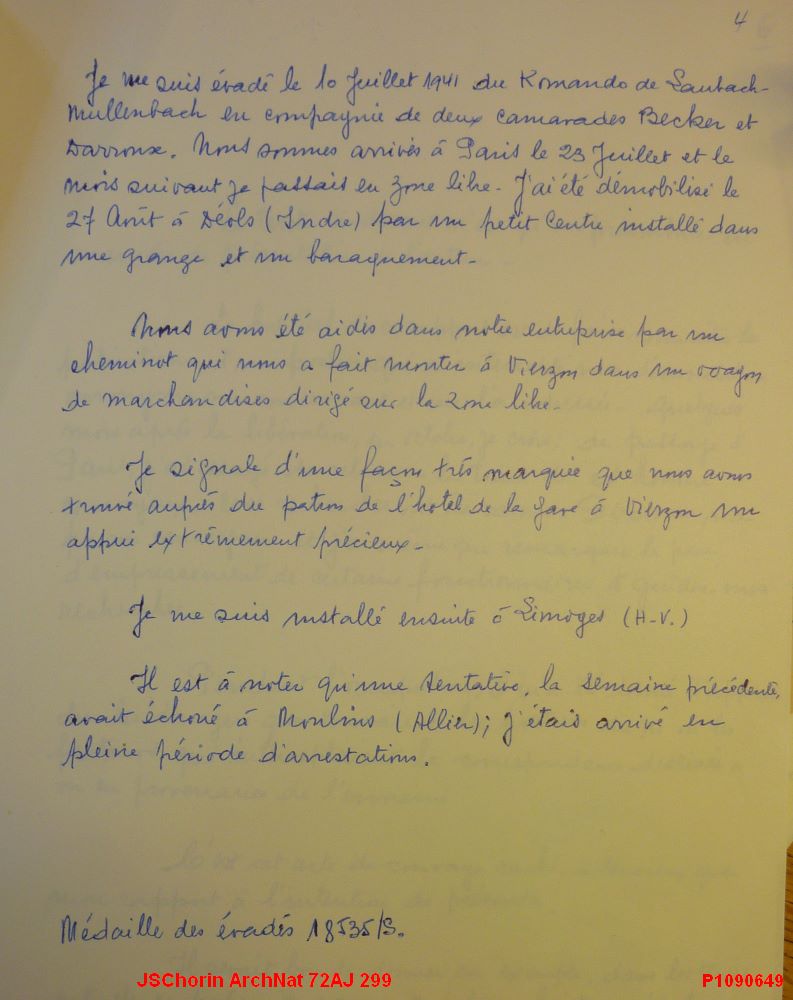 4
Je me suis évadé le 10 Juillet 1941 du Komando de Laubach-
Mullenbach en compagnie de deux camarades Becker et
Darroux. Nous sommes arrivés à Paris le 23 Juillet et le
mois suivant je passais en zone libre. J'ai été démobilisé le
27 Août à Déols (Indre) par un petit Centre installé dans
une grange et un baraquement.
Nous avons été aidés dans notre entreprise par un
cheminot qui nous a fait monter à Vierzon dans un wagon
de marchandises dirigé sur la zone libre.
Je signale d'une façon très marquée que nous avons
trouvé auprès du patron de l'hotel de la Gare à Vierzon un
appui extrêmement précieux.
Je me suis installé ensuite à Limoges (H-V.)
Il est à noter qu'une tentative, la semaine précédente,
avait échoué à Moulins (Allier); j'étais arrivé en
pleine période d'arrestations.
Médaille des évadés 18535/S.
JSChorin ArchNat 72AJ 299
P1090649